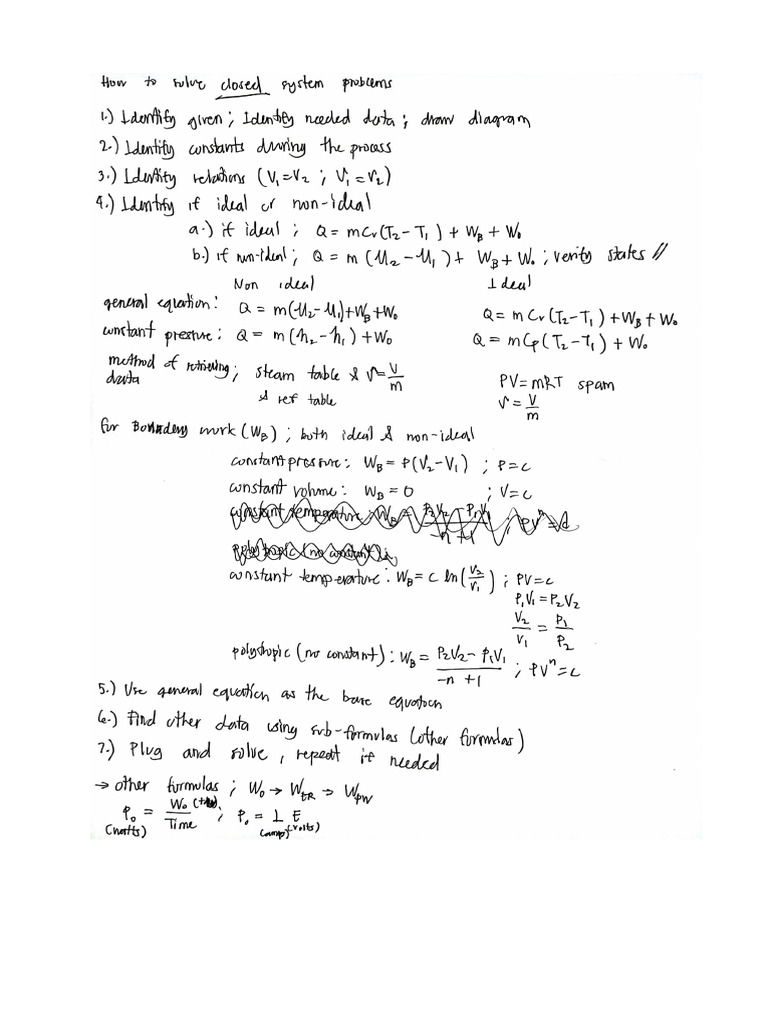 How to solve closed system problems
1.) Identify given ; Identify needed data ; draw diagram
2.) Identify constants during the process
3.) Identify relations (V₁=V₂ ; v₁=v₂)
4.) Identify if ideal or non-ideal
a.) if ideal ; Q = mCv(T₂-T₁) + W_B + W₀
b.) if non-ideal ; Q = m(U₂-U₁) + W_B + W₀ ; verify states //
Non ideal Ideal
general equation: Q = m(U₂-U₁)+W_B+W₀ Q = mCv(T₂-T₁)+W_B+W₀
constant pressure: Q = m(h₂-h₁)+W₀ Q = mCp(T₂-T₁)+W₀
method of retrieving data ; steam table & v=V/m PV=mRT spam
& ref table v=V/m
for Boundary work (W_B) ; both ideal & non-ideal
constant pressure: W_B = P(V₂-V₁) ; P=c
constant volume: W_B = 0 ; V=c
constant temperature: W_B = c ln(V₂/V₁) ; PV=c
P₁V₁=P₂V₂
V₂/V₁ = P₁/P₂
polytropic (no constant): W_B = P₂V₂-P₁V₁/-n+1 ; PVⁿ=c
5.) Use general equation as the base equation
6.) Find other data using sub-formulas (other formulas)
7.) Plug and solve, repeat if needed
→ other formulas ; W₀ → W_tR → W_PW
P₀ = W₀/Time ; P₀ = I E
(watts) (amp) (volts)